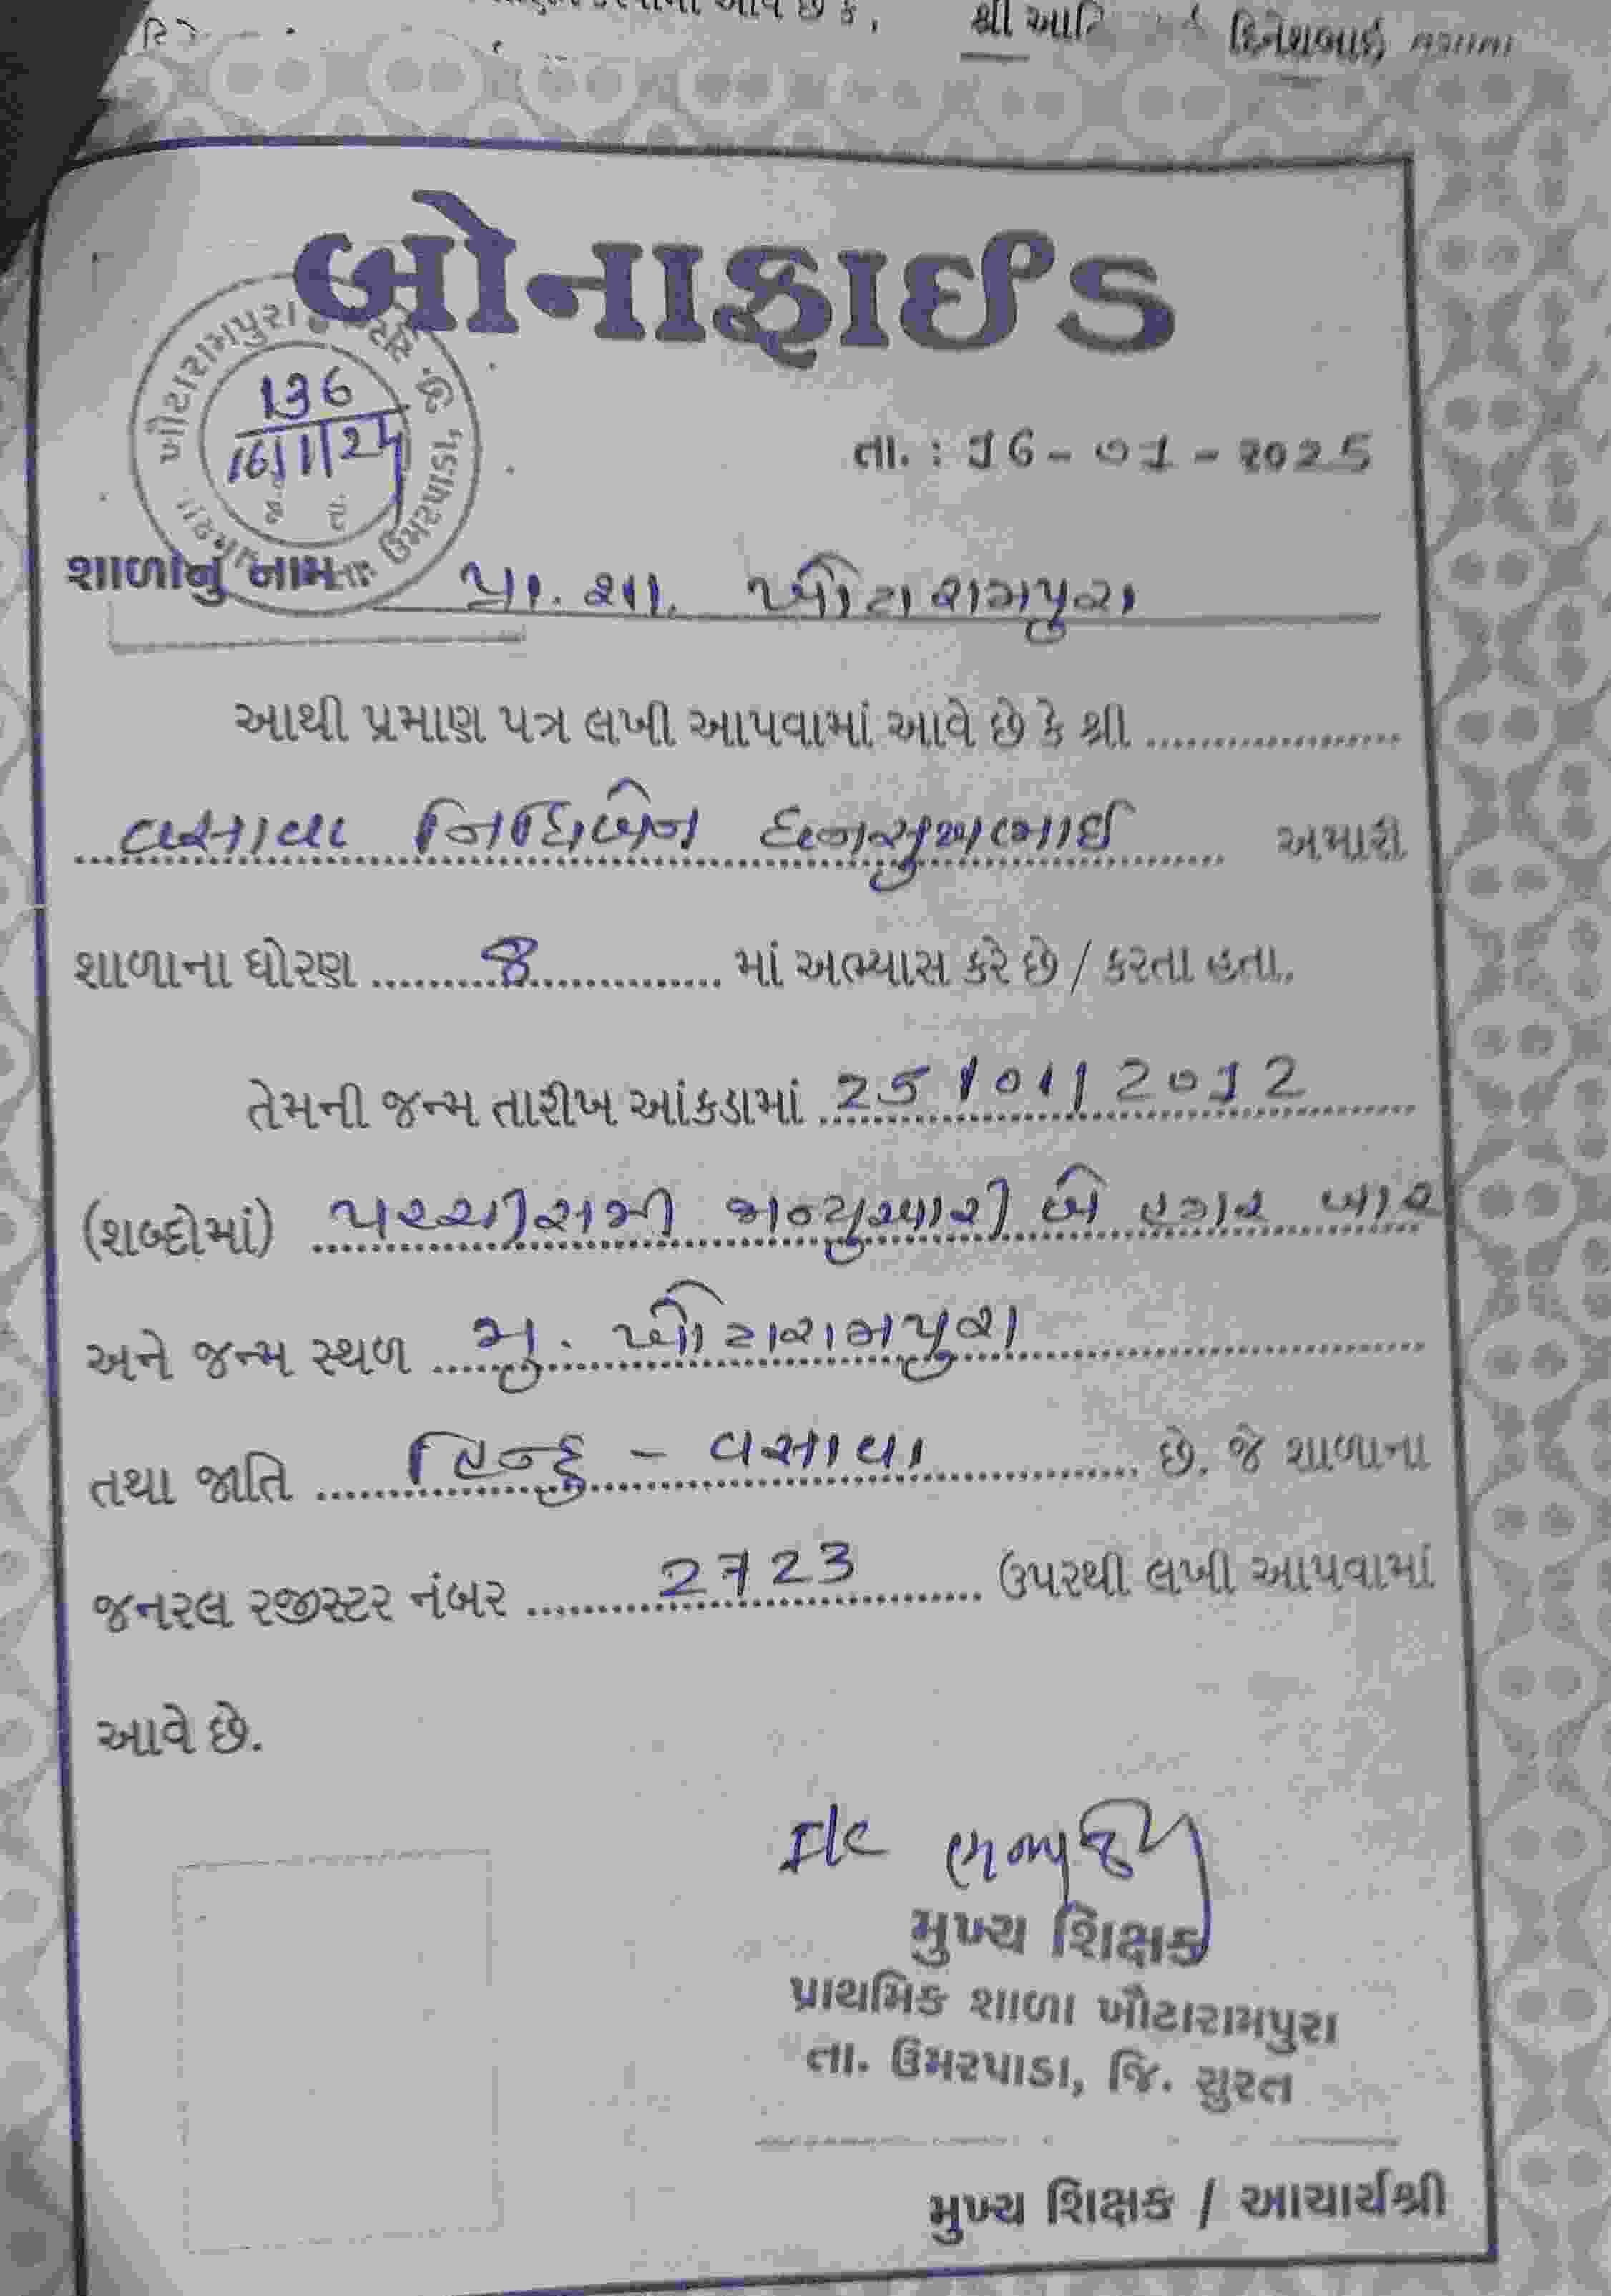 શ્રી
દિનેશભાઈ વસાવા
બોનાફાઈડ
ખૌટારામપુરા
ઉમરપાડા,
136
16/1/25
જા. તા.
તા. : 16-01-2025
શાળાનું નામ પ્રા. શા. ખૌટારામપુરા
આથી પ્રમાણ પત્ર લખી આપવામાં આવે છે કે શ્રી ....................
વસાવા નિધિબેન ધનસુખભાઈ અમારી
શાળાના ધોરણ 8 માં અભ્યાસ કરે છે / કરતા હતા.
તેમની જન્મ તારીખ આંકડામાં 25/01/2012
(શબ્દોમાં) પચ્ચીસમી જાન્યુઆરી બે હજાર બાર
અને જન્મ સ્થળ મુ. ખૌટારામપુરા
તથા જાતિ હિન્દુ - વસાવા છે. જે શાળાના
જનરલ રજીસ્ટર નંબર 2723 ઉપરથી લખી આપવામાં
આવે છે.
I/c
મુખ્ય શિક્ષક
પ્રાથમિક શાળા ખૌટારામપુરા
તા. ઉમરપાડા, જિ. સુરત
મુખ્ય શિક્ષક / આચાર્યશ્રી